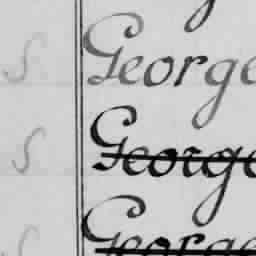 S. George
S George
S George